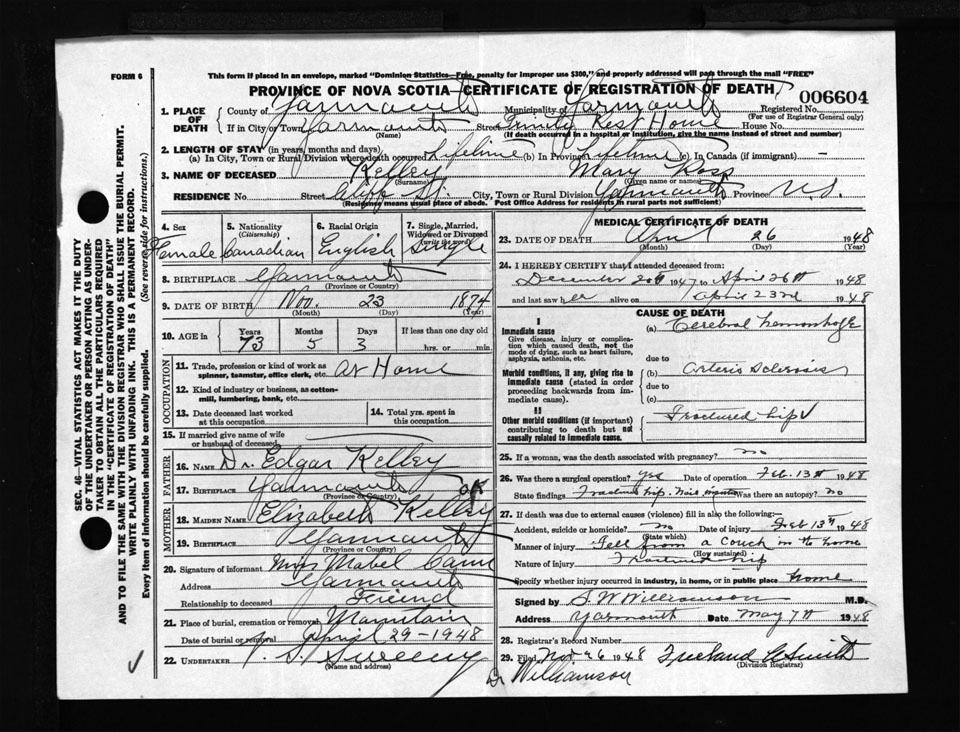 FORM 6
This form if placed in an envelope, marked "Dominion Statistics—Free, penalty for improper use $300," and properly addressed will pass through the mail "FREE"
PROVINCE OF NOVA SCOTIA—CERTIFICATE OF REGISTRATION OF DEATH
006604
1. PLACE OF DEATH County of Yarmouth Municipality of Yarmouth Registered No.
(For use of Registrar General only)
If in City or Town Yarmouth Street Trinity Rest Home House No.
(Name) (If death occurred in a hospital or institution, give the name instead of street and number)
2. LENGTH OF STAY (in years, months and days)
(a) In City, Town or Rural Division where death occurred Lifetime (b) In Province Lifetime (c) In Canada (if immigrant) —
3. NAME OF DECEASED Kelley Mary Ross
(Surname) (Given name or names)
RESIDENCE No. Street Cliff St. City, Town or Rural Division Yarmouth Province N.S.
(Residence means usual place of abode. Post Office Address for residents in rural parts not sufficient)
4. Sex Female
5. Nationality (Citizenship) Canadian
6. Racial Origin English
7. Single, Married, Widowed or Divorced (write the word) Single
8. BIRTHPLACE Yarmouth
(Province or Country)
9. DATE OF BIRTH Nov. 23 1874
(Month) (Day) (Year)
10. AGE in Years Months Days If less than one day old
73 5 3 hrs. or min.
OCCUPATION
11. Trade, profession or kind of work as spinner, teamster, office clerk, etc. At Home
12. Kind of industry or business, as cotton-mill, lumbering, bank, etc.
13. Date deceased last worked at this occupation
14. Total yrs. spent in this occupation
15. If married give name of wife or husband of deceased
FATHER
16. NAME Dr. Edgar Kelley
17. BIRTHPLACE Yarmouth OK
(Province or Country)
MOTHER
18. MAIDEN NAME Elizabeth Kelley
19. BIRTHPLACE Yarmouth
(Province or Country)
20. Signature of informant Miss Mabel Cann
Address Yarmouth
Relationship to deceased Friend
21. Place of burial, cremation or removal Mountain
Date of burial or removal April 29-1948
22. UNDERTAKER Sweeny
(Name and address)
MEDICAL CERTIFICATE OF DEATH
23. DATE OF DEATH April 26 1948
(Month) (Day)
24. I HEREBY CERTIFY that I attended deceased from:
December 1947 to April 26th 1948
and last saw her alive on April 23rd 1948
CAUSE OF DEATH
I
Immediate cause (a) Cerebral hemorrhage
Give disease, injury or complication which caused death, not the mode of dying, such as heart failure, asphyxia, asthenia, etc.
due to
Morbid conditions, if any, giving rise to immediate cause (stated in order proceeding backwards from immediate cause). (b) Arterio Sclerosis
due to
(c)
II
Other morbid conditions (if important) contributing to death but not causally related to immediate cause. Fractured hip
25. If a woman, was the death associated with pregnancy? no
26. Was there a surgical operation? yes Date of operation Feb. 13th 1948
State findings Fracture hip. Was there an autopsy? no
27. If death was due to external causes (violence) fill in also the following:—
Accident, suicide or homicide? no Date of injury Feb 13th 1948
(State which)
Manner of injury Fell from a couch in the home
(How sustained)
Nature of injury Fractured hip
Specify whether injury occurred in industry, in home, or in public place home
Signed by S. W. Williamson M.D.
Address Yarmouth Date May 7th 1948
28. Registrar's Record Number
29. Filed Nov 26 1948 Freeland C Smith
(Division Registrar)
Dr Williamson
SEC. 46—VITAL STATISTICS ACT MAKES IT THE DUTY
OF THE UNDERTAKER OR PERSON ACTING AS UNDER-
TAKER TO OBTAIN ALL THE PARTICULARS REQUIRED
IN THE "CERTIFICATE OF REGISTRATION OF DEATH"
AND TO FILE THE SAME WITH THE DIVISION REGISTRAR WHO SHALL ISSUE THE BURIAL PERMIT.
WRITE PLAINLY WITH UNFADING INK. THIS IS A PERMANENT RECORD.
Every item of information should be carefully supplied. (See reverse side for instructions.)